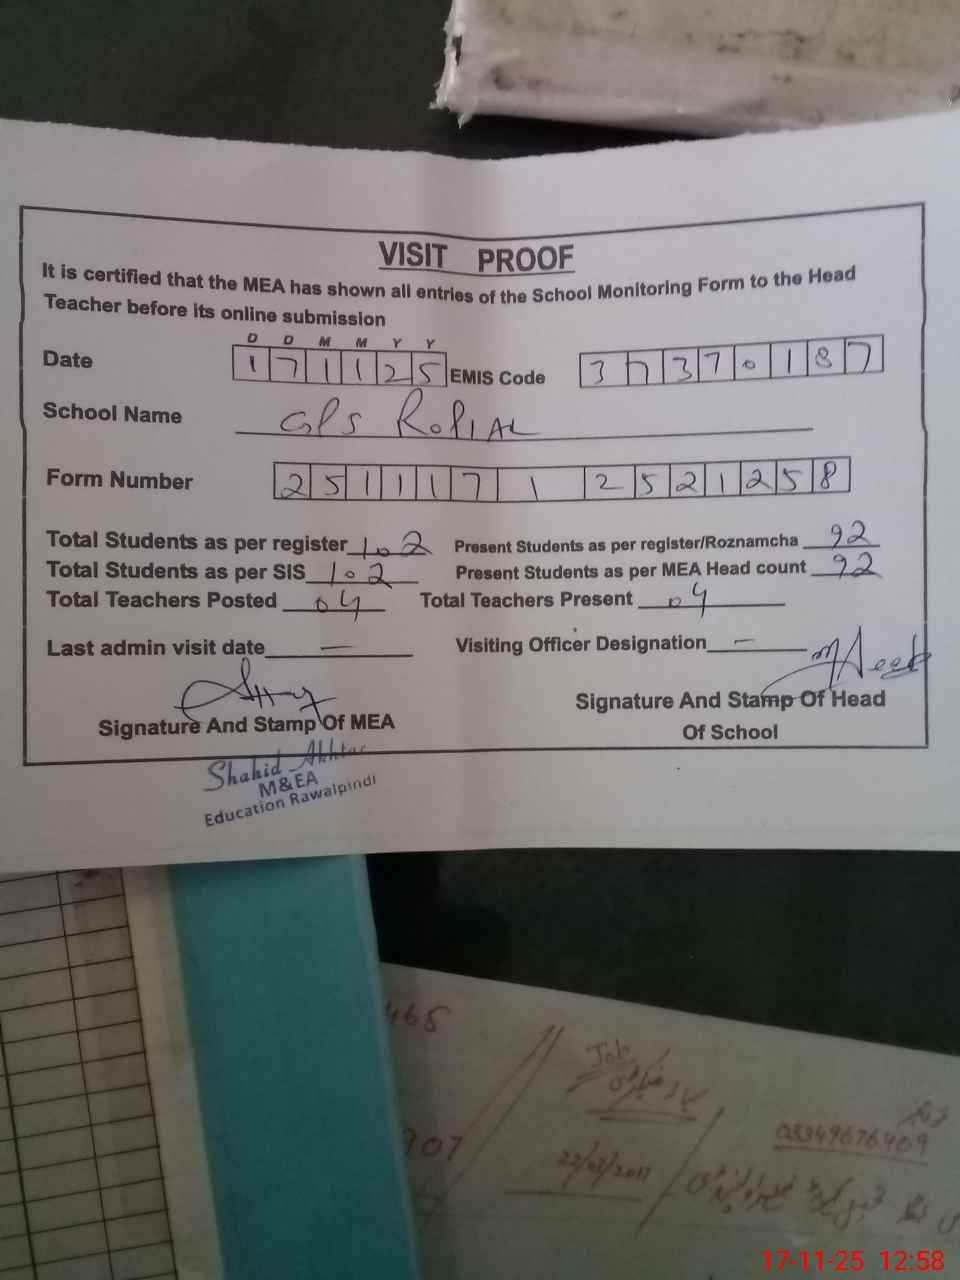 VISIT PROOF
It is certified that the MEA has shown all entries of the School Monitoring Form to the Head
Teacher before its online submission
D D M M Y Y
Date 1 7 1 1 2 5 EMIS Code 3 7 3 7 0 1 8 7
School Name GPS ROPIAL
Form Number 2 5 1 1 1 7 1 2 5 2 1 2 5 8
Total Students as per register 102 Present Students as per register/Roznamcha 92
Total Students as per SIS 102 Present Students as per MEA Head count 92
Total Teachers Posted 04 Total Teachers Present 04
Last admin visit date — Visiting Officer Designation —
Signature And Stamp Of MEA Signature And Stamp Of Head
Of School
Shahid Akhtar
M&EA
Education Rawalpindi
465
Job
907
22/08/2011
03349676409
17-11-25 12:58